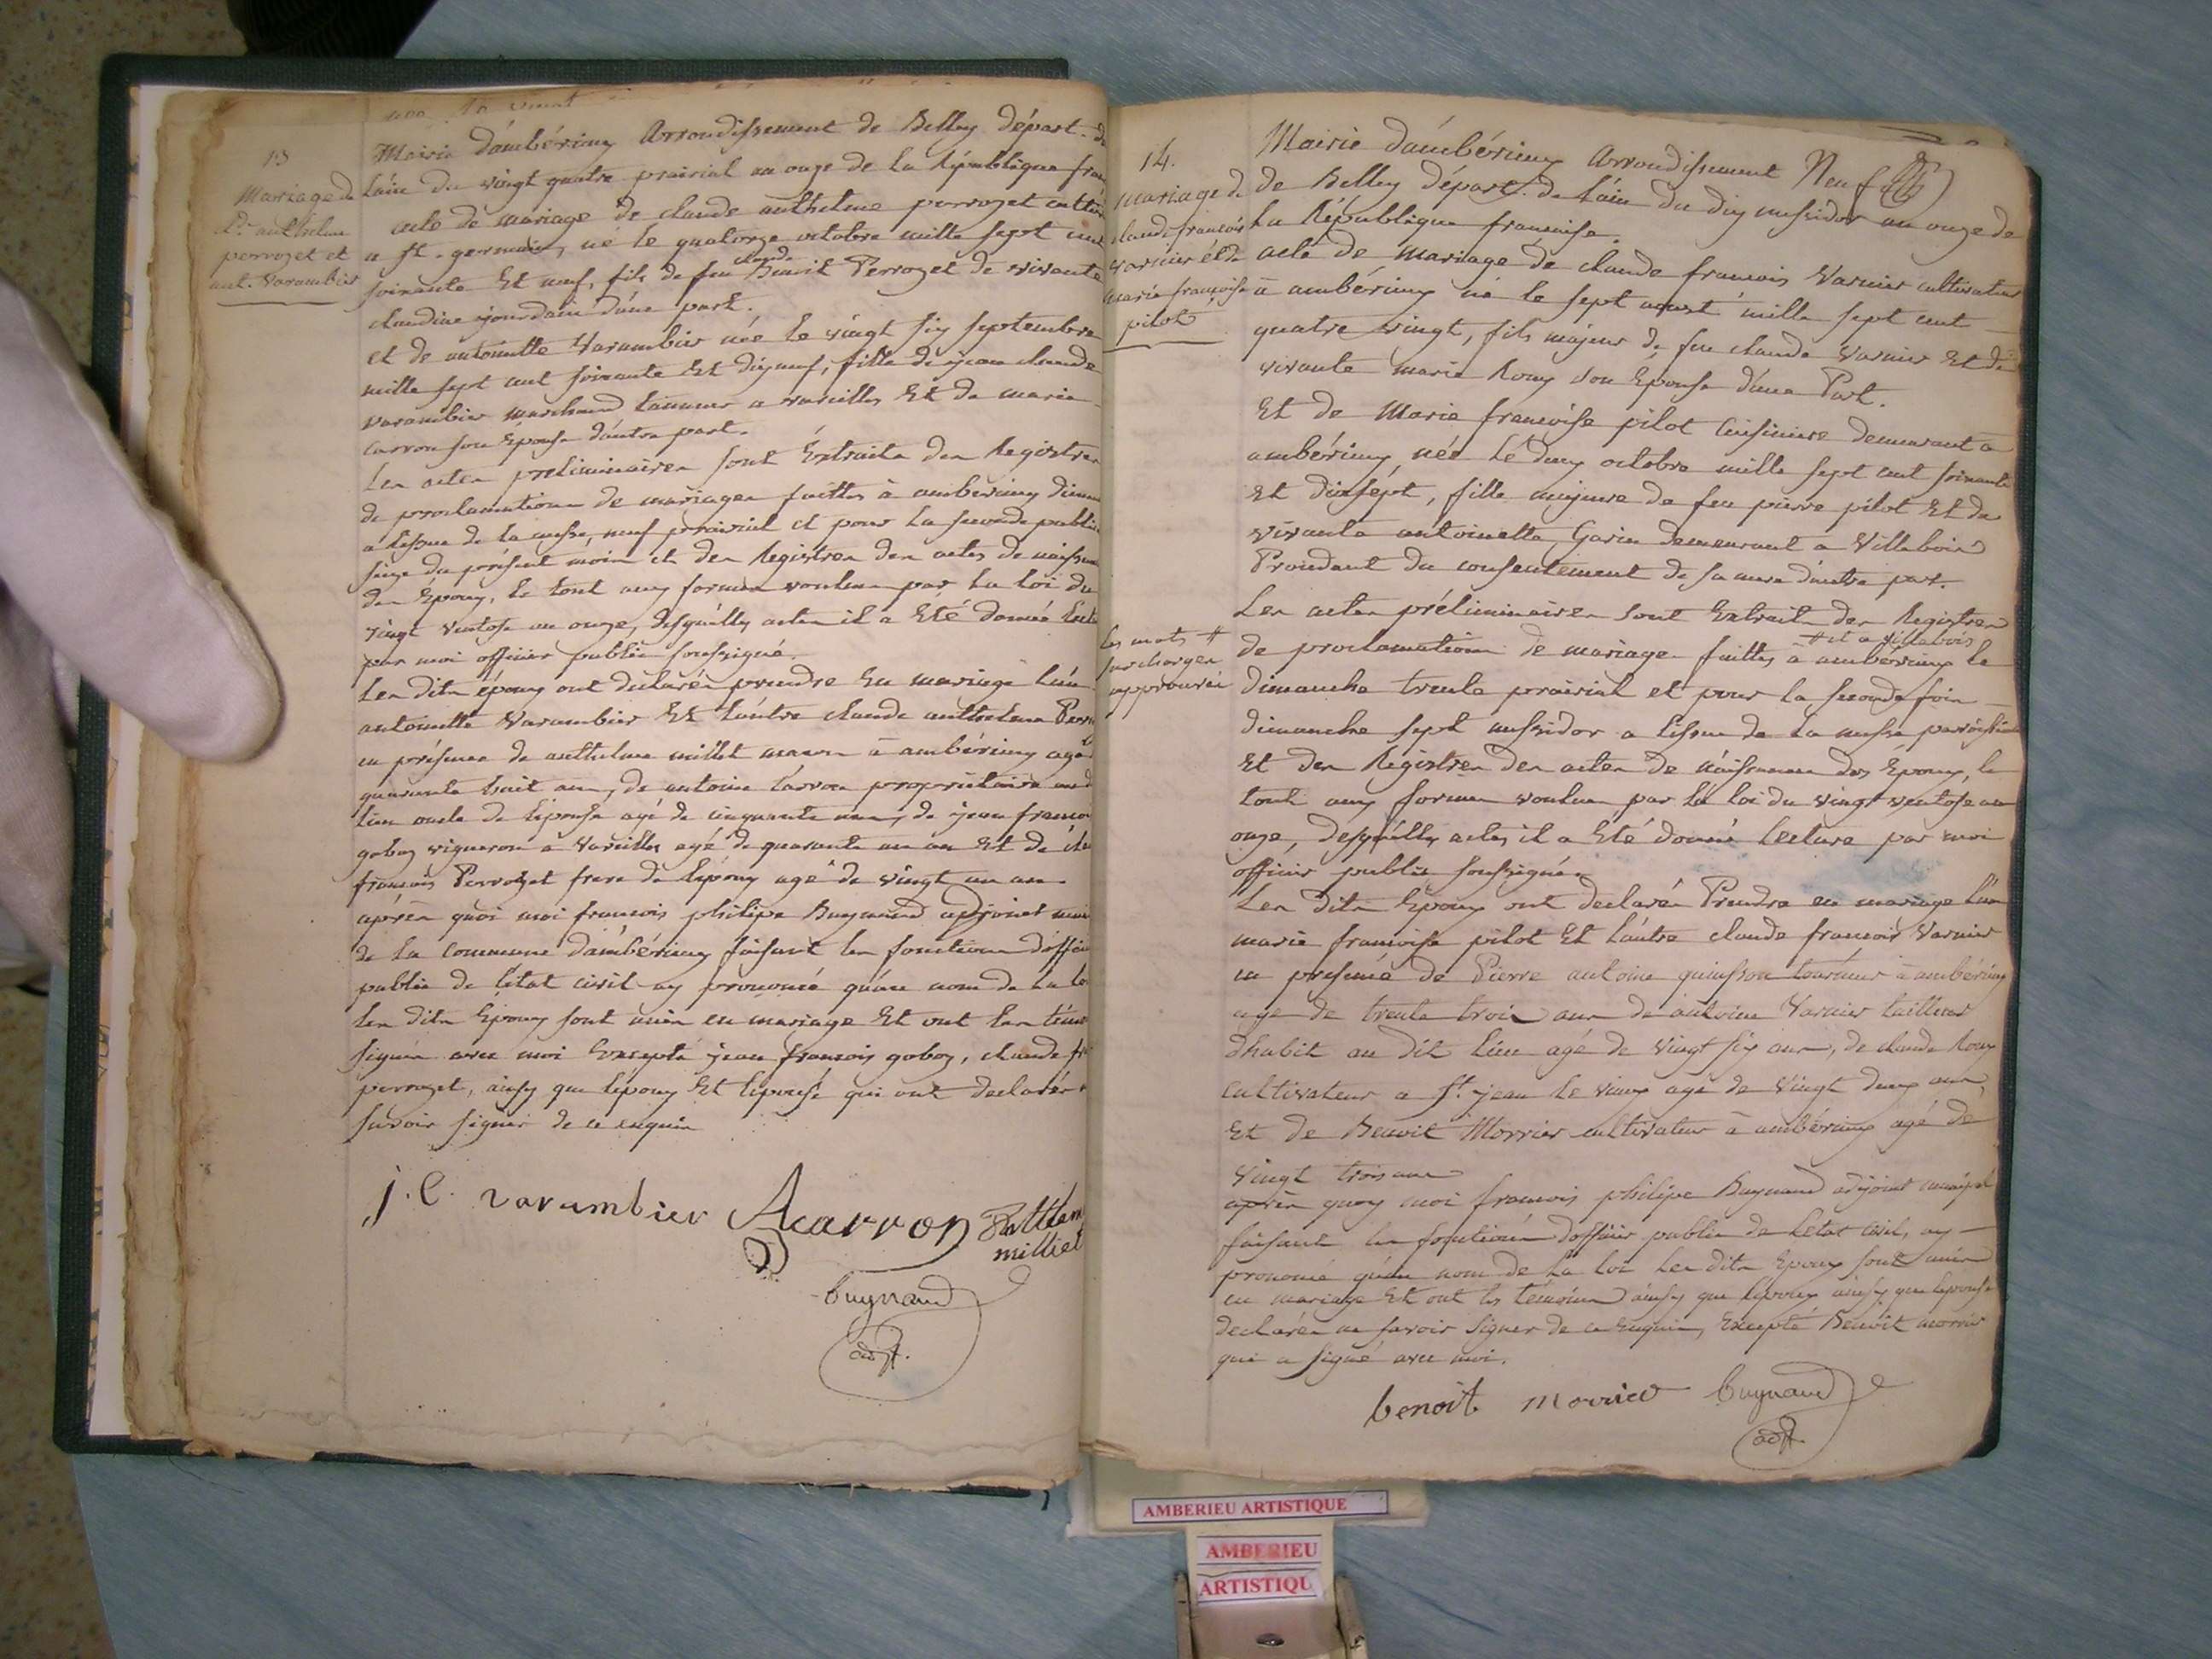 13
Mariage de
Cde anthelme
perrozet et
ant. Varambier
Mairie d'ambérieux Arrondissement de Belley départ. de
lain du vingt quatre prairial an onze de la République fran
acte de mariage de claude anthelme perrozet cultiv
a st. germain, né le quatorze octobre mille sept cent
soixante Et neuf, fils de feu claude Benoit Perrozet de vivante
claudine jourdain d'une part.
et de antoinette Varambier née le vingt six septembre
mille sept cent soixante Et dix neuf, fille de jean claude
varambier marchand tanneur a vareilles Et de marie
carron son Epouse d'autre part.
Les actes preliminaires sont Extraits des Registres
de proclamations de mariages faittes à ambérieux diman
a lissue de la messe, neuf prairial et pour la seconde publi
seize du présent mois et des Registres des actes de naissan
des Epoux, le tout aux formes voulues par la loi du
vingt ventose an onze, desquells actes il a Eté donné lect
par moi officier public soussigné.
Les dits époux ont declarés prendre En mariage l'un
antoinette Varambier Et l'autre claude anthelme Perro
en présence de anthelme millet à ambérieux agé
quarante huit ans, de antoine carron propriétaire
lieu oncle de l'epouse agé de cinquante ans, de jean françoi
goboz vigneron à Vareilles agé de quarante un an Et de cla
françois Perrozet frere de l'epoux agé de vingt un ans.
après quoi moi françois philipe Buynand adjoint muni
de la commune d'ambérieux faisant les fonctions d'offici
public de l'état civil ay prononcé qu'au nom de la loi
les dits Epoux sont unis en mariage Et ont les témo
signés avec moi Excepté jean françois goboz, claude fr
perrozet, ainsy que l'epoux Et l'epouse qui ont declarés
savoir signer de ce enquis
j. C. varambier Acarron Anthlem
milliet
buynand
adjt.
14.
mariage de
claude françois
varnier et de
marie françoise
pilot
Mairie d'ambérieux Arrondissement Neuf
de Belley départ. de l'ain du dix messidor an onze de
la République française.
acte de mariage de claude françois Varnier cultivateur
à ambérieux né le sept aoust mille sept cent
quatre vingt, fils majeur de feu claude Varnier Et de
vivante marie Roux son Epouse d'une Part.
Et de Marie françoise pilot Cuisiniere demeurant à
ambérieux, née le deux octobre mille sept cent soixante
Et dixsept, fille majeure de feu pierre pilot Et de
vivante antoinette Garin demeurant a Villebois
Procedant du consentement de sa mere d'autre part.
Les actes préliminaires sont Extraits des Registres
# et a Villebois
de proclamations de mariage faittes à ambérieux le
les mots #
surcharges
approuvés
dimanche trente prairial et pour la seconde fois
dimanche sept messidor a lissue de la messe paroissia
Et des Registres des actes de naissances des Epoux, le
tout aux formes voulues par la loi du vingt ventose an
onze, desquells actes il a Eté donné lecture par moi
officier public soussigné.
Les dits Epoux ont declarés Prendre en mariage l'un
marie françoise pilot Et l'autre claude françois Varnier
en presence de Pierre antoine quinsson tourneur à ambérieux
age de trente trois ans de antoine Varnier tailleur
d'habit au dit lieu agé de Vingt six ans, de claude Roux
cultivateur a st. jean le vieux agé de Vingt deux ans,
Et de Benoit Morrier cultivateur à ambérieux agé de
Vingt trois ans
après quoy moi françois philipe Buynand adjoint municipal
faisant les fonctions d'officier public de l'etat civil, ay
prononcé qu'au nom de la loi les dits Epoux sont unis
en mariage Et ont les témoins ainsy que l'epoux ainsy que l'epouse
declarés ne savoir signer de ce Enquis, Excepté Benoit morrier
qui a signé avec moi.
benoit morrier buynand
adjt.
AMBERIEU ARTISTIQUE
AMBERIEU
ARTISTIQU